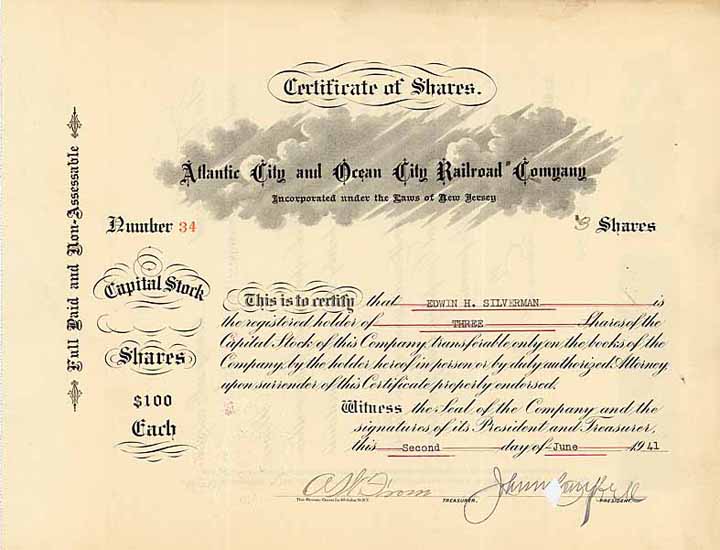 Certificate of Shares.
Atlantic City and Ocean City Railroad Company
Incorporated under the Laws of New Jersey
Full Paid and Non-Assessable
Number 34
3 Shares
Capital Stock
Shares
$100
Each
This is to certify that EDWIN H. SILVERMAN is
the registered holder of THREE Shares of the
Capital Stock of this Company, transferable only on the books of the
Company, by the holder hereof in person or by duly authorized Attorney,
upon surrender of this Certificate properly endorsed.
Witness the Seal of the Company and the
signatures of its President and Treasurer,
this Second day of June 1941
TREASURER.
PRESIDENT.